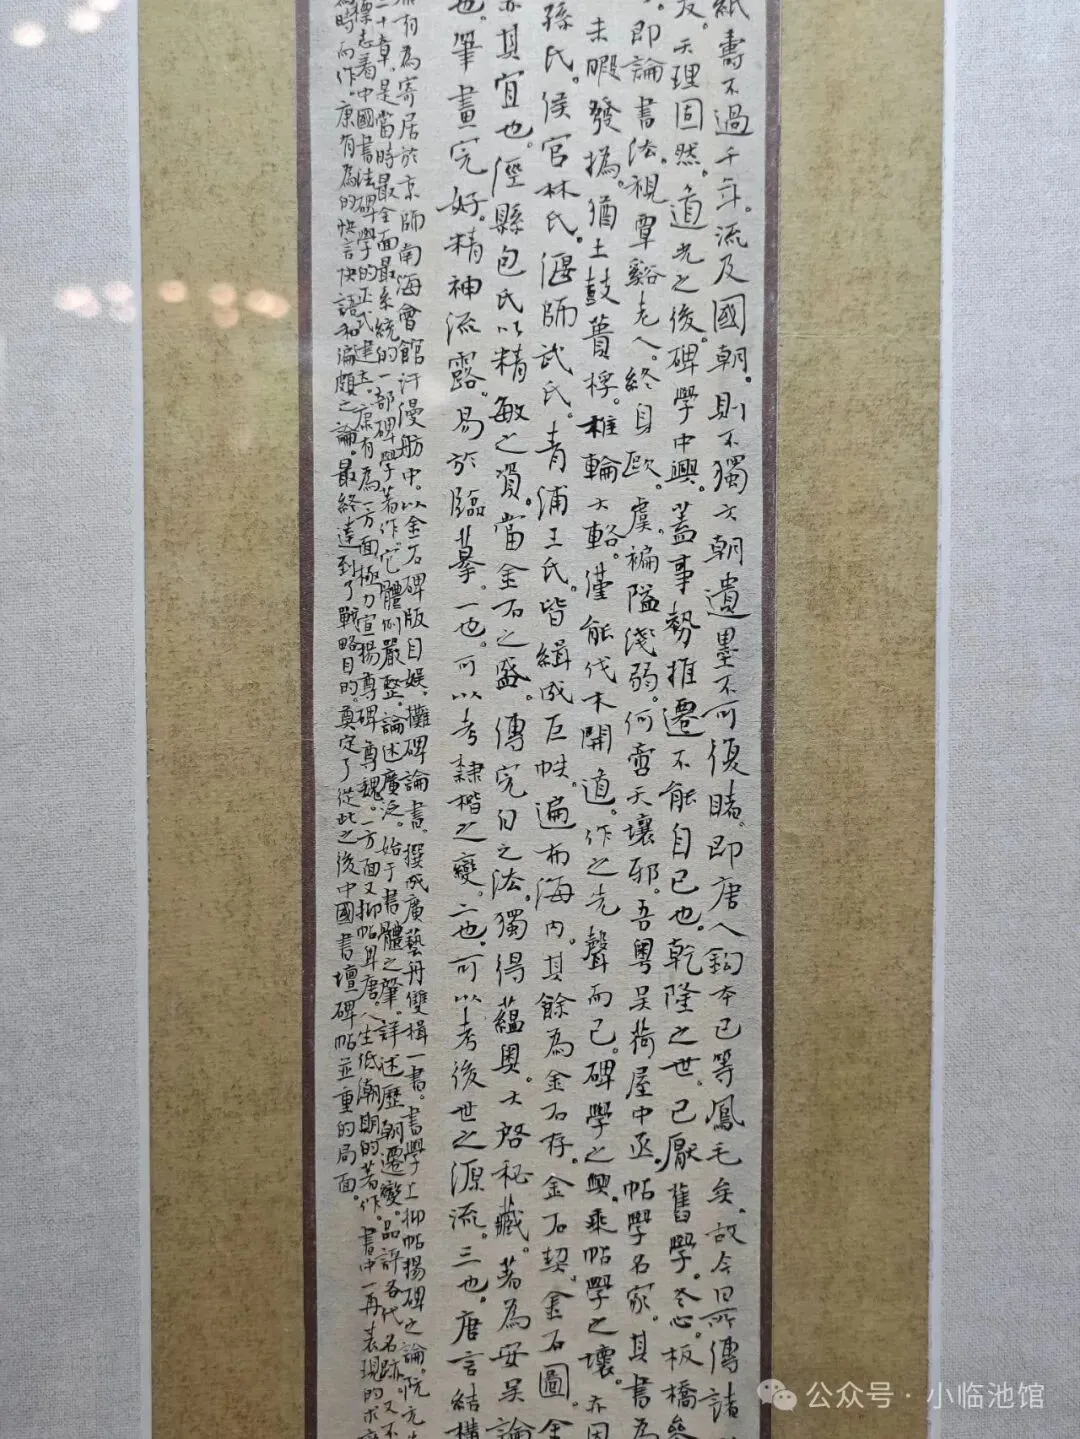 紙壽不過千年。流及國朝。則不獨六朝遺墨不可復睹。即唐人鈎本已等鳳毛矣。故今日所傳諸
反。天理固然。道光之後。碑學中興。蓋事勢推遷不能自已也。乾隆之世。已厭舊學。冬心。板橋參
。即論書法。視覃谿老人。終身歐。虞。褊隘淺弱。何啻天壤邪。吾粵吳荷屋中丞。帖學名家。其書為
未暇發撝。猶土鼓蕢桴。椎輪大輅。僅能伐木開道。作之先聲而已。碑學之興。乘帖學之壞。亦因
孫氏。侯官林氏。偃師武氏。青浦王氏。皆緝成巨帙。遍布海內。其餘為金石存。金石契。金石圖。金
亦其宜也。涇縣包氏以精敏之資。當金石之盛。傳完白之法。獨得蘊奧。大啓秘藏。著為安吳論
也。筆畫完好。精神流露。易於臨摹。一也。可以考隸楷之變。二也。可以考後世之源流。三也。唐言結構
有為寄居於京師南海會館汗漫舫中。以金石碑版自娛。攤碑論書。撰成廣藝舟雙楫一書。書學上抑帖揚碑之論。阮元
二十章。是當時最全面最系統的一部碑學著作。它體例嚴整。論述廣泛。始于書體之肇。詳述歷朝遷變。品評各代名跡。又不
標志着中國書法碑學的正式建立。康有為一方面極力宣揚尊碑尊魏。一方面又抑帖卑唐。人生低潮期的著作。書中一再表現的求
時而作。康有為的快言快語和偏頗之論。最終達到了戰略目的。奠定了從此之後中國書壇碑帖並重的局面。
公众号·小临池馆